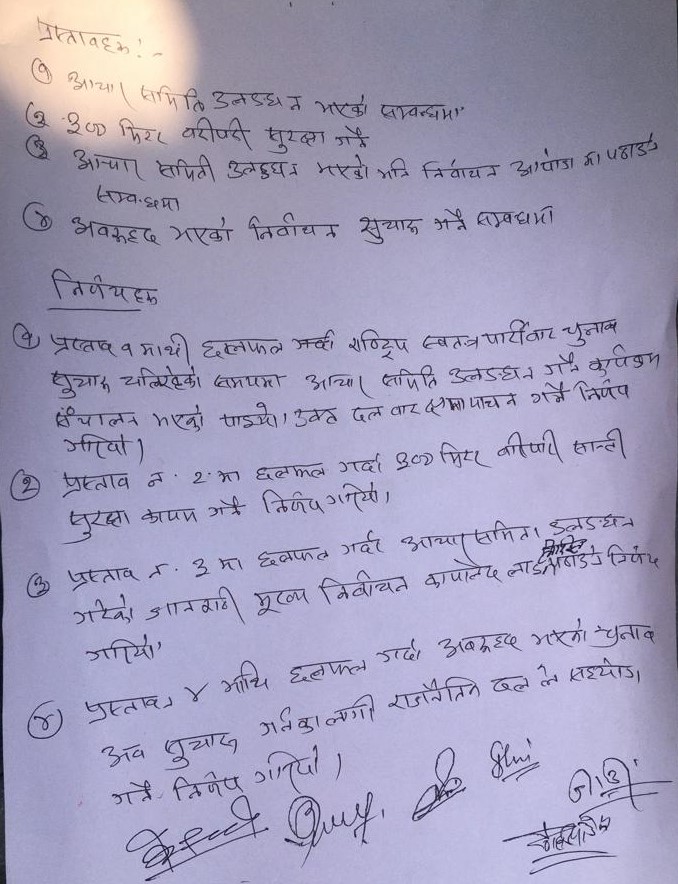 प्रस्तावहरु :-
१ आचार समिति उलङघन भएको सम्बन्धमा
२ ३०० मिटर वरीपरी सुरक्षा गर्ने
३ आचार समिती उलङघन भएको भनि निर्वाचन आयोग मा पठाउने
सम्बन्धमा
४ अवरुद्द भएको निर्वाचन सुचारु गर्ने सम्बधमा
निर्णयहरु
१ प्रस्ताव १ माथी छलफल गर्दा राष्ट्रिय स्वतन्त्र पार्टीवाट चुनाव
सुचारु चलिरहेको समयमा आचार समिति उलङघन गर्ने कार्यक्रम
संचालन भएको पाइयो। उक्त दल वाट क्षमा याचना गर्ने निर्णय
गरियो।
२ प्रस्ताव न. २ मा छलफल गर्दा ३०० मिटर वरिपरी सान्ती
सुरक्षा कायम गर्ने निर्णय गरियो।
३ प्रस्ताव न. ३ मा छलफल गर्दा आचार समिति उलङघन
गरेको जानकारी मुख्य निर्वाचन कार्यालय लाई पठाउने निर्णय
गरियो
४ प्रस्ताव ४ माथि छलफल गर्दा अवरुद्द भएको चुनाव
अव सुचारु गर्नका लागी राजनैतिक दल ले सहयोग
गर्ने निर्णय गरियो।